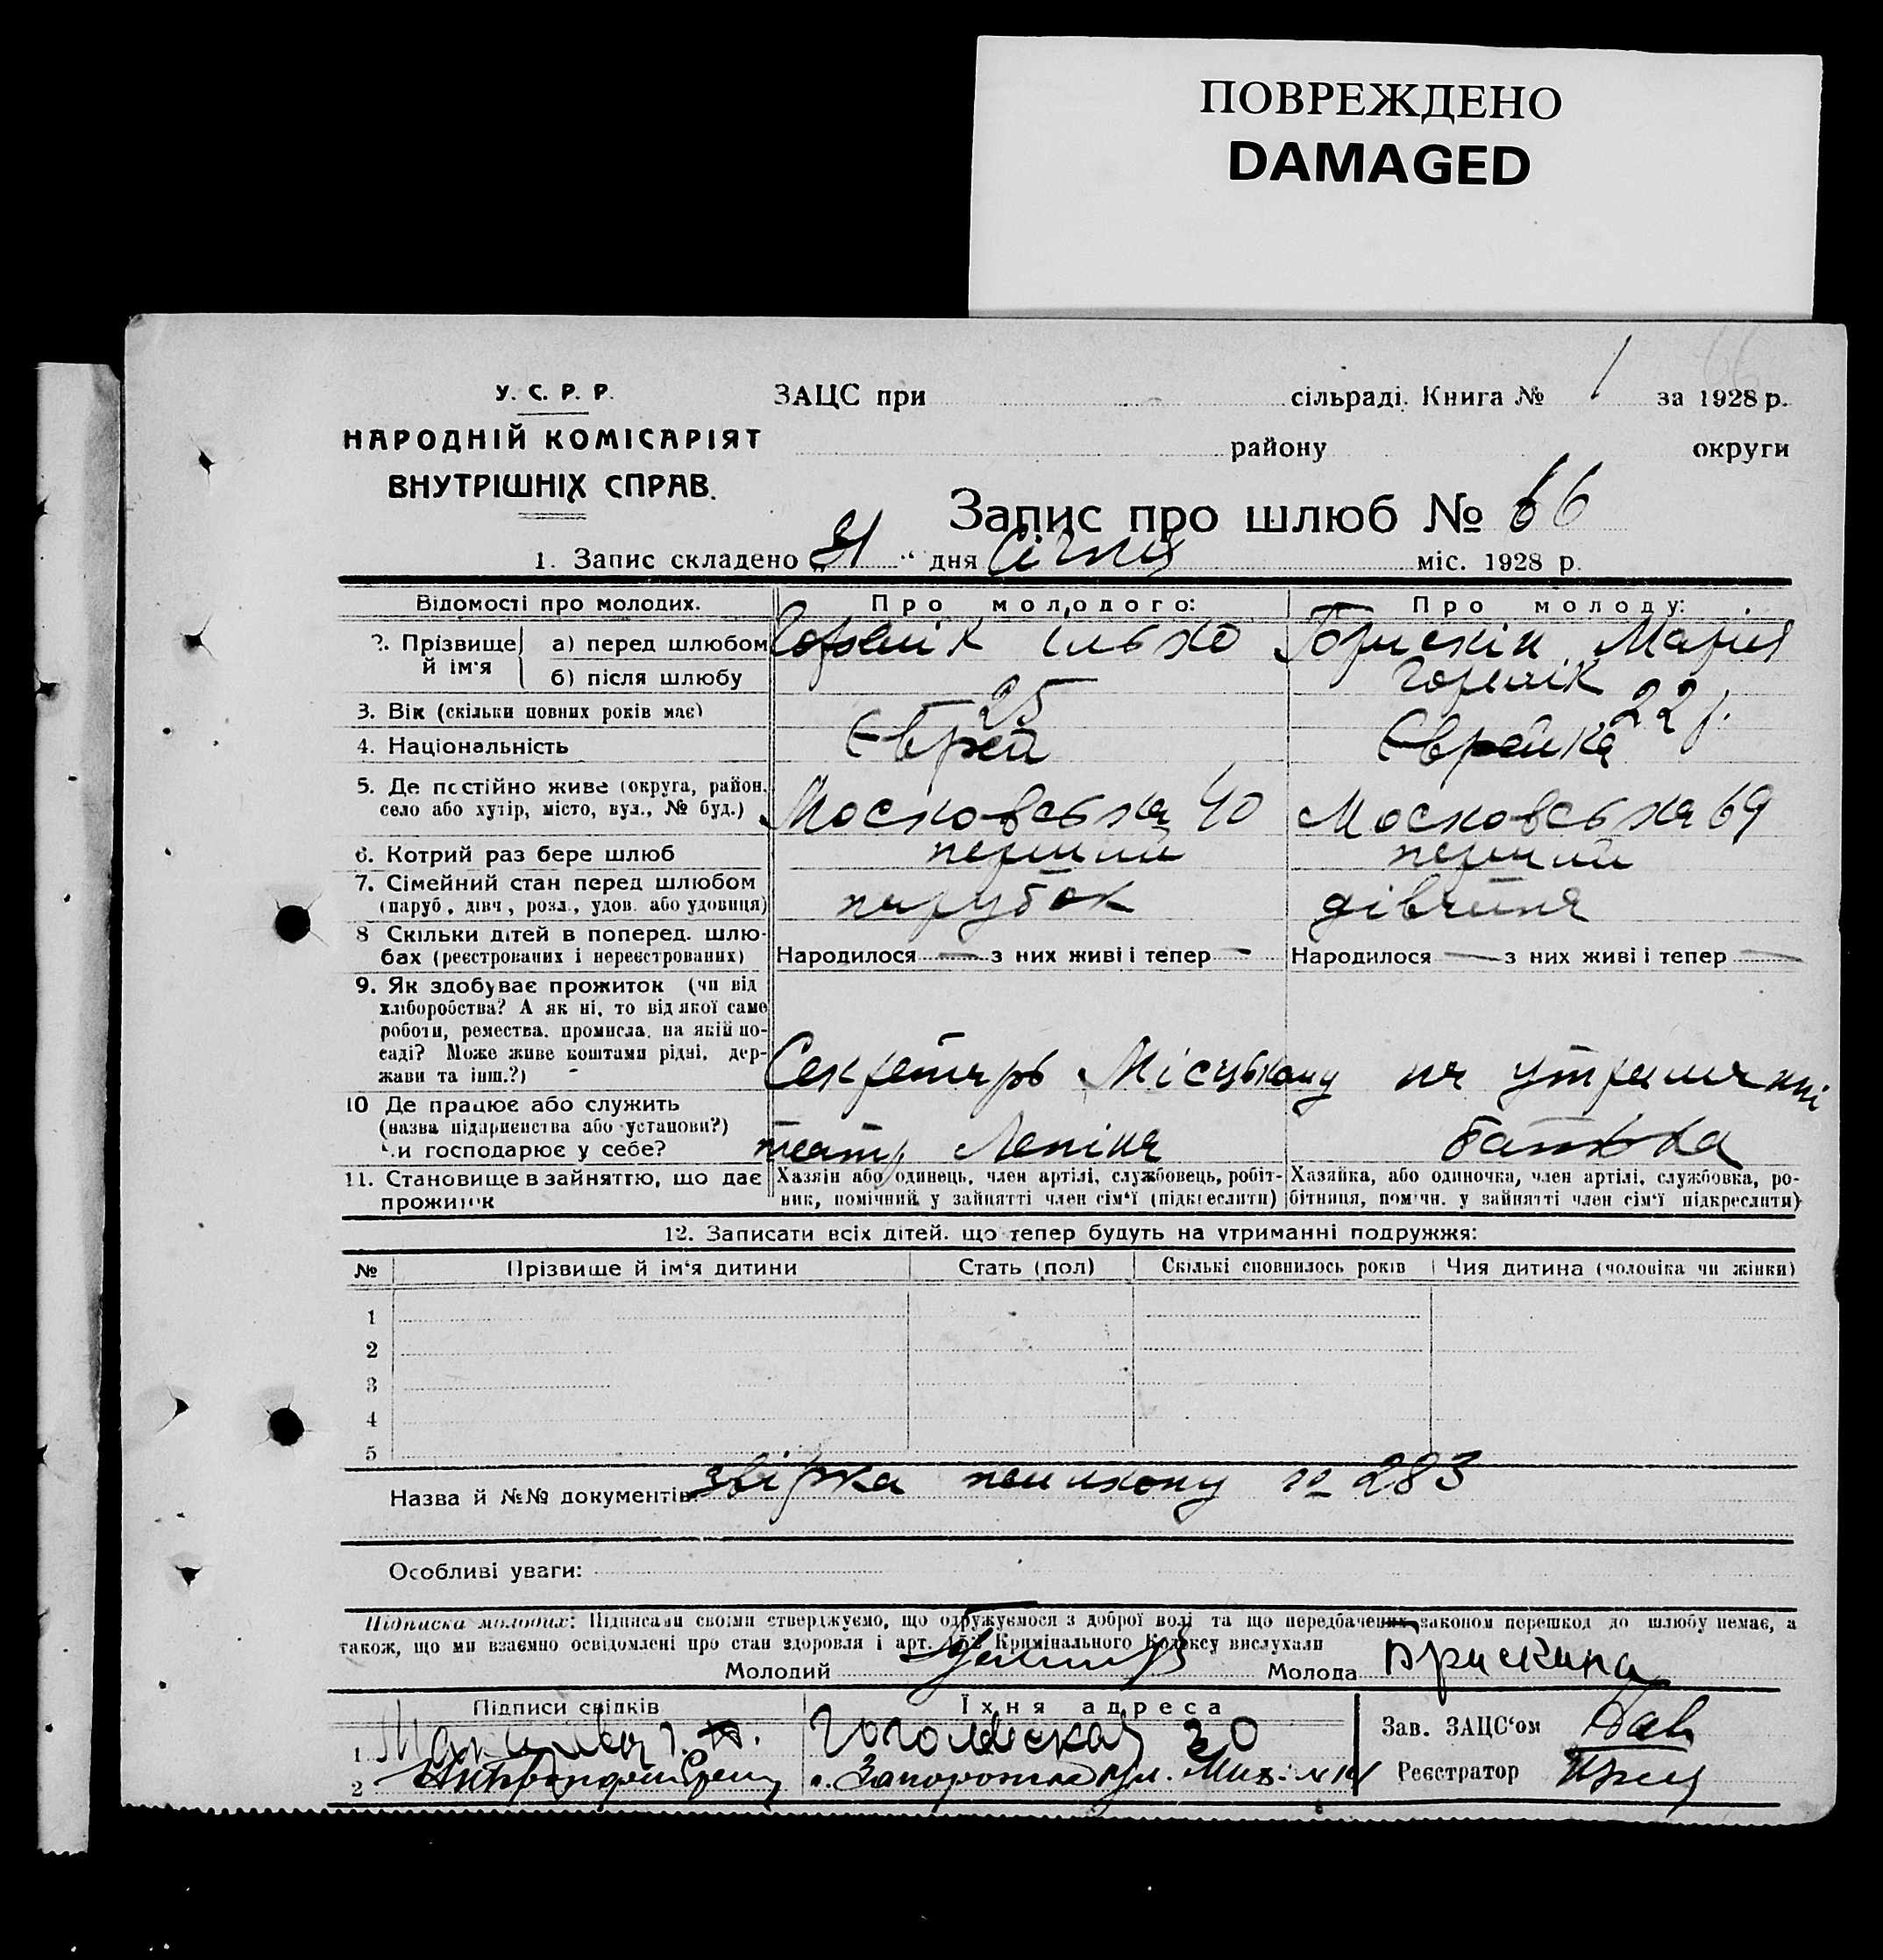 ПОВРЕЖДЕНО
DAMAGED
У. С. Р. Р.
НАРОДНІЙ КОМІСАРІЯТ
ВНУТРІШНІХ СПРАВ.
66
ЗАЦС при сільраді. Книга № 1 за 1928 р.
району округи
Запис про шлюб № 66
1. Запис складено „ “ дня Січня міс. 1928 р.
Відомості про молодих. Про молодого: Про молоду:
2. Прізвище й ім'я
а) перед шлюбом Ілько Марія
б) після шлюбу
3. Вік (скільки повних років має) 25 22 р.
4. Національність Єврей Єврейка
5. Де постійно живе (округа, район, Московська 40 Московська 69
село або хутір, місто, вул., № буд.)
6. Котрий раз бере шлюб перший перший
7. Сімейний стан перед шлюбом парубок дівчина
(паруб., дівч., розл., удов. або удовиця)
8 Скільки дітей в поперед. шлю-
бах (реєстрованих і нереєстрованих) Народилося — з них живі і тепер — Народилося — з них живі і тепер —
9. Як здобуває прожиток (чи від
хліборобства? А як ні, то від якої саме
роботи, ремества, промисла, на якій по-
саді? Може живе коштами рідні, дер- Секретарь Місцькому на утриманні
жави та інш.?)
10 Де працює або служить
(назва підприємства або установи?) театр Леніна батька
Чи господарює у себе?
11. Становище в зайняттю, що дає Хазяїн або одинець, член артілі, службовець, робіт- Хазяйка, або одиночка, член артілі, службовка, ро-
прожиток ник, помічний у зайнятті член сім'ї (підкреслити) бітниця, помічн. у зайнятті член сім'ї підкреслити)
12. Записати всіх дітей, що тепер будуть на утриманні подружжя:
№ Прізвище й ім'я дитини Стать (пол) Скількі сповнилось років Чия дитина (чоловіка чи жінки)
1
2
3
4
5
Назва й №№ документів: № 283
Особливі уваги:
Підписка молодих: Підписами своїми стверджуємо, що одружуємося з доброї волі та що передбачених законом перешкод до шлюбу немає, а
також, що ми взаємно освідомлені про стан здоровля і арт. Кримінального Кодексу вислухали
Молодий Молода Брискина
Підписи свідків Їхня адреса
1 Гоголевская 30 Зав. ЗАЦС'ом
2 Реєстратор